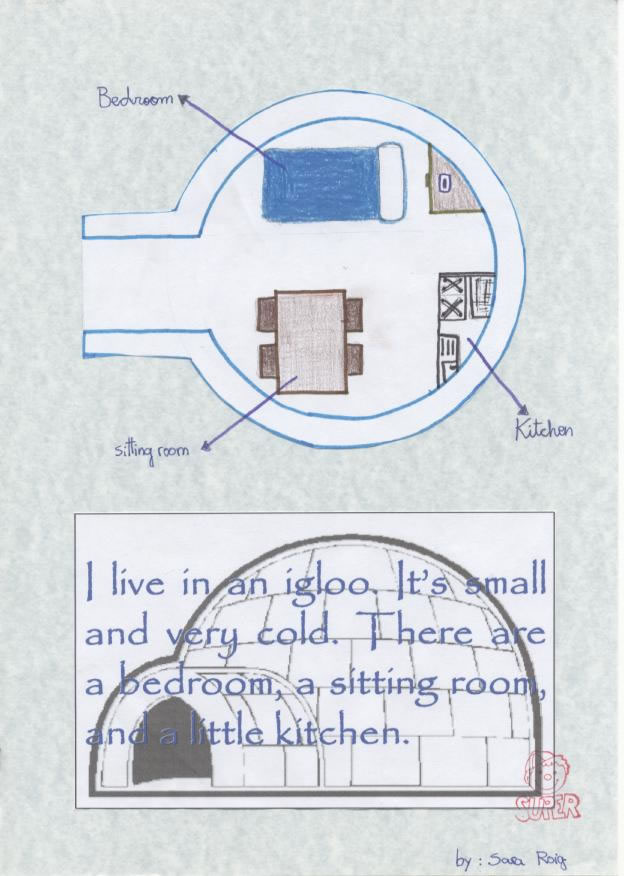 Bedroom
Kitchen
sitting room
I live in an igloo. It's small
and very cold. There are
a bedroom, a sitting room,
and a little kitchen.
SUPER
by: Sara Roig